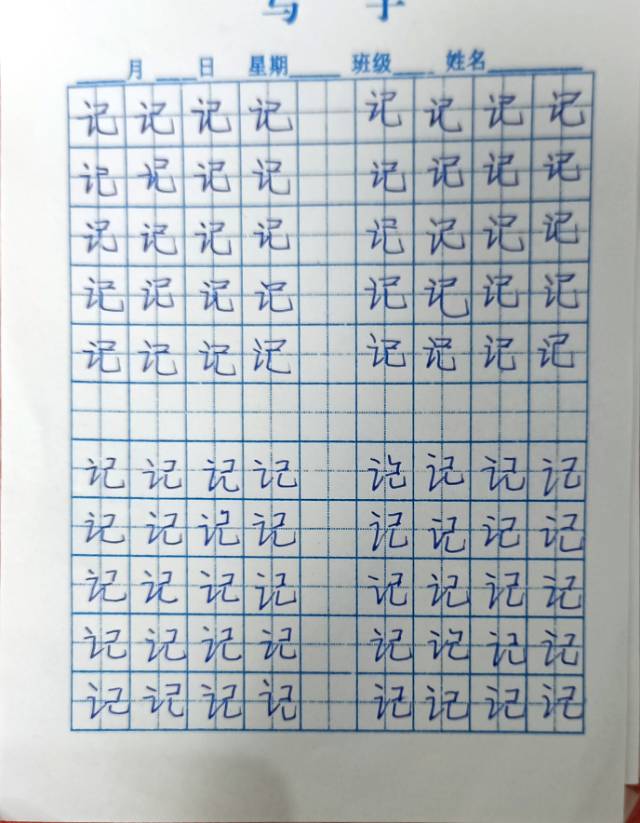 写 字
____月 ____日 星期____ 班级____ 姓名________
记 记 记 记 记 记 记 记
记 记 记 记 记 记 记 记
记 记 记 记 记 记 记 记
记 记 记 记 记 记 记 记
记 记 记 记 记 记 记 记
记 记 记 记 记 记 记 记
记 记 记 记 记 记 记 记
记 记 记 记 记 记 记 记
记 记 记 记 记 记 记 记
记 记 记 记 记 记 记 记